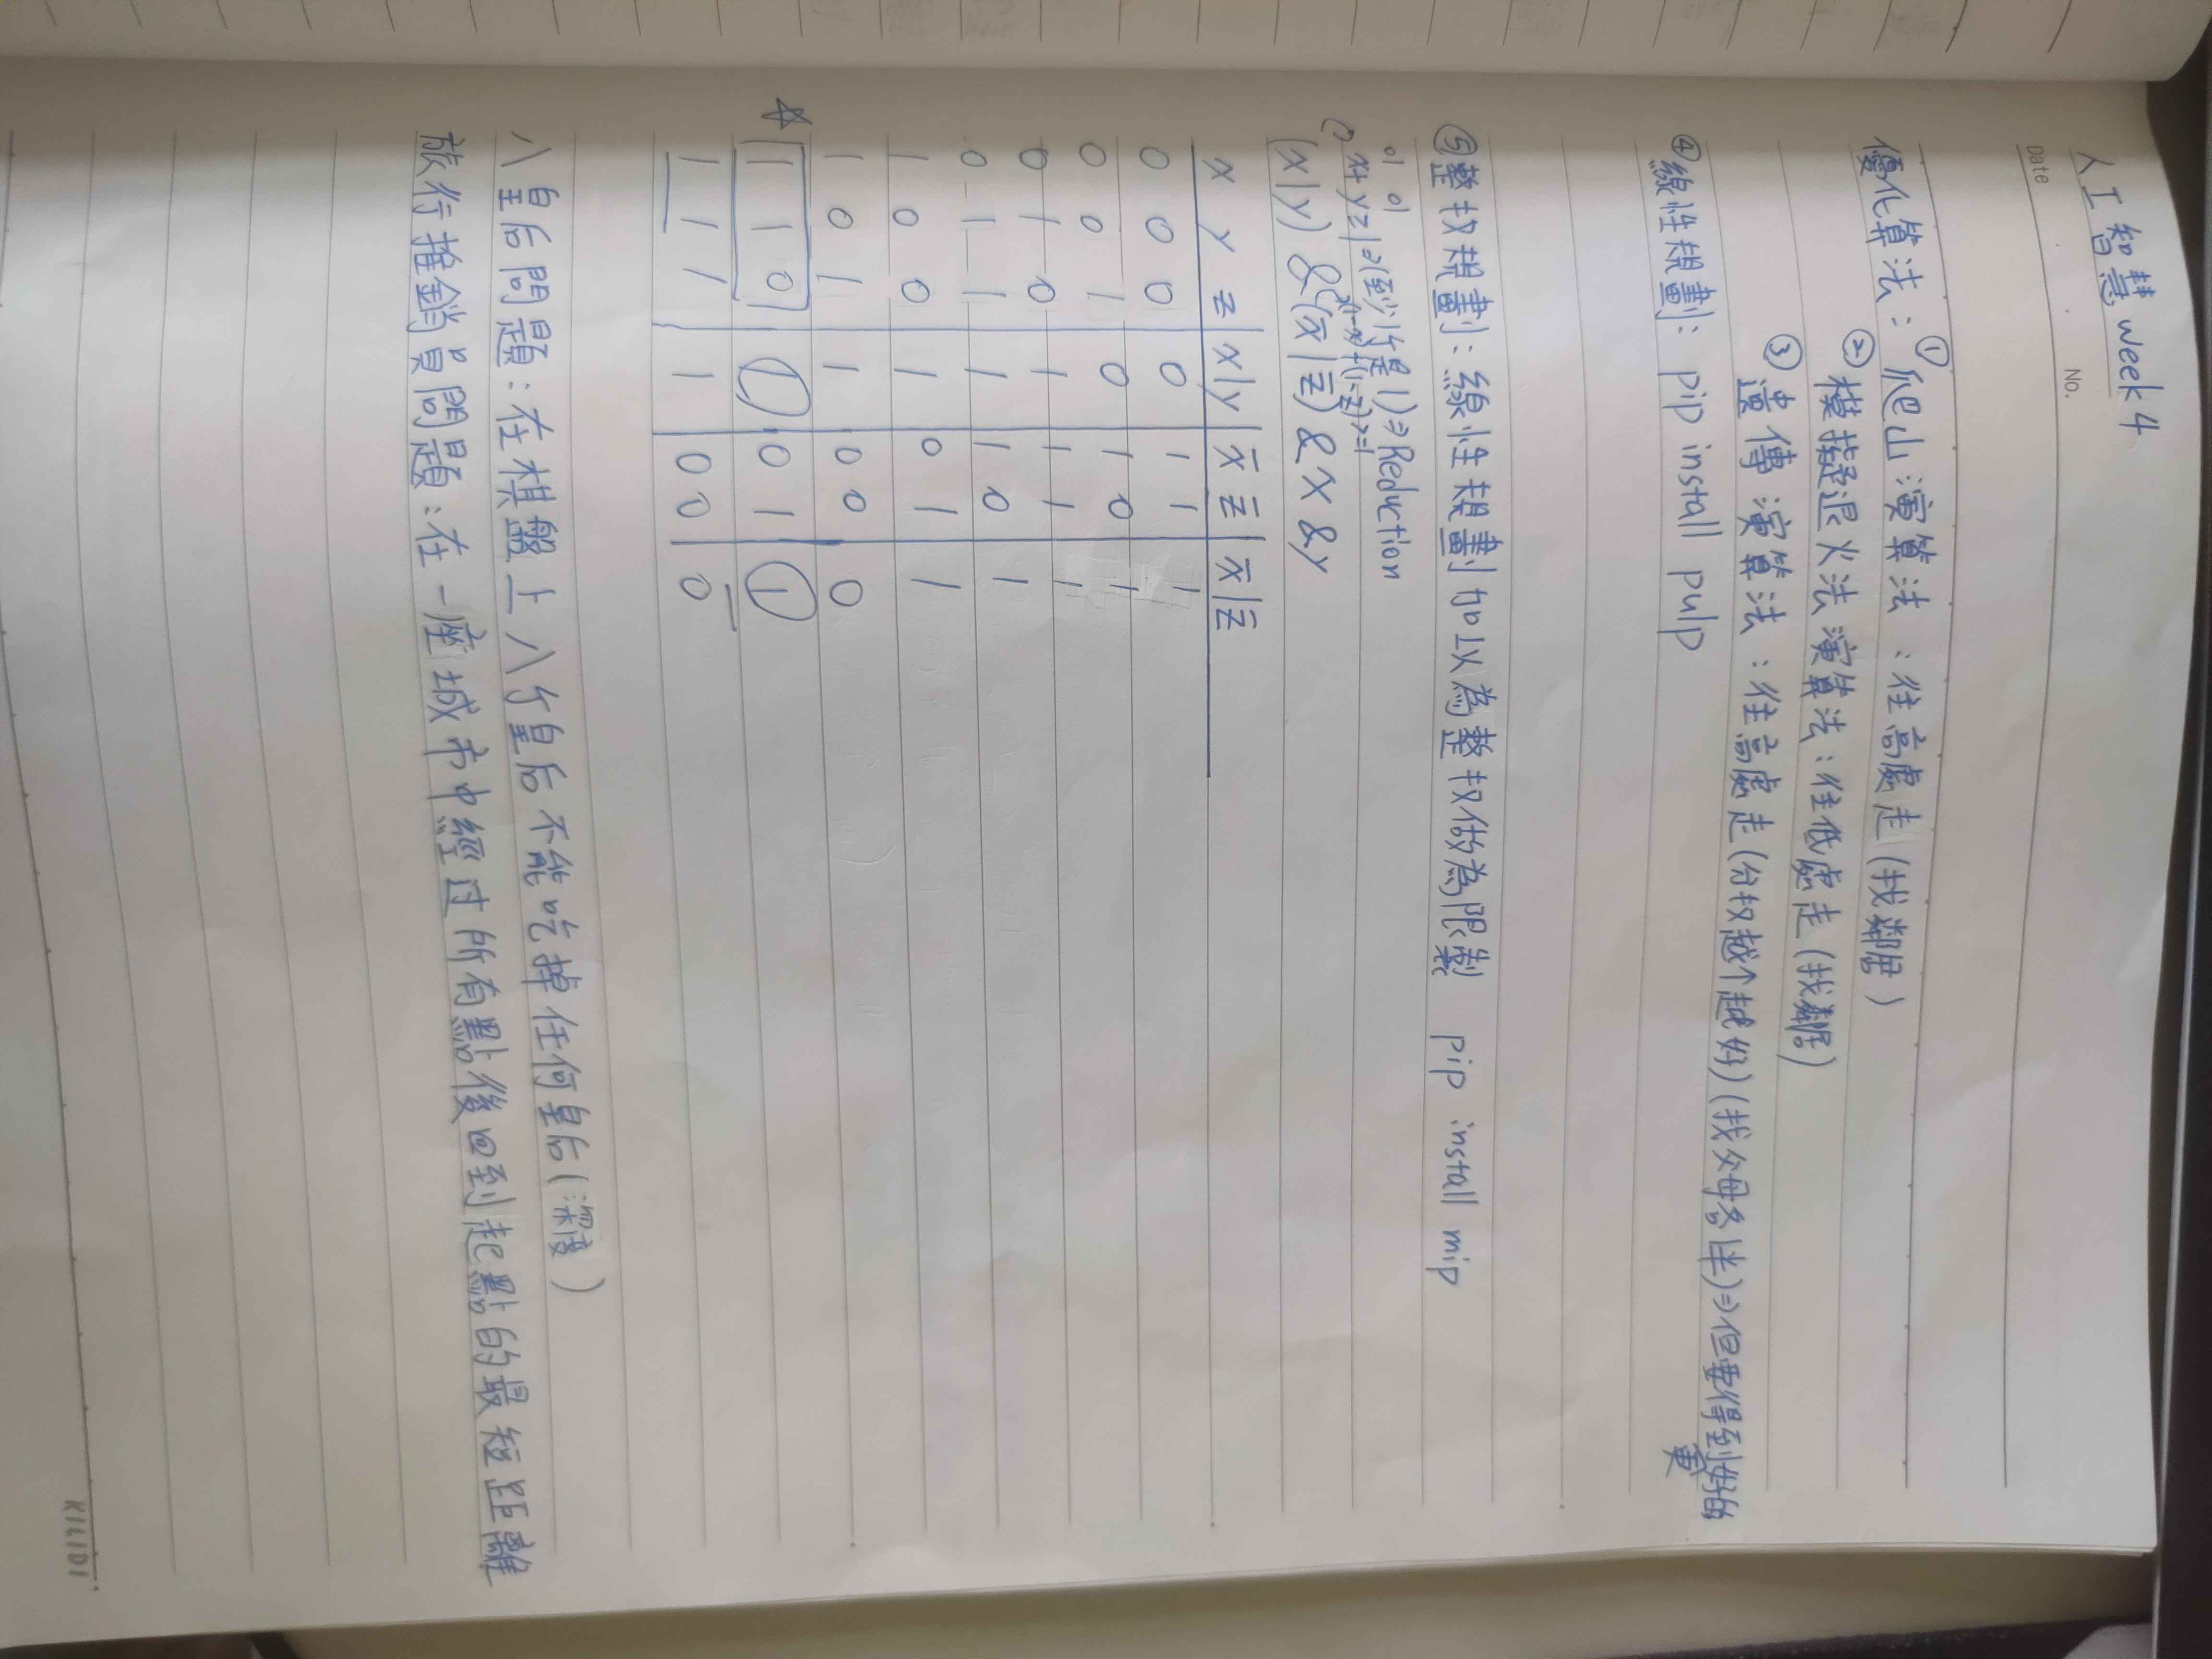 人工智慧 week 4
Date No.
優化算法: ① 爬山演算法 : 往高處走 (找鄰居)
② 模擬退火法演算法 : 往低處走 (找鄰居)
③ 遺傳演算法 : 往高處走 (分权越个越好) (找父母各1半) ⇒ 但要得到更好的
④ 線性規劃: pip install pulp
⑤ 整权規劃: 線性規劃加以為整权做為限製 pip install mip
01 01
x + y ≥ 1 ⇒ (至少1个是1) ⇒ Reduction
(1-x) + (1-z) >= 1
(x|y) & (x̄|z̄) & x & y
x y z | x|y | x̄ z̄ | x̄|z̄
0 0 0 | 0 | 1 1 | 1
0 0 1 | 0 | 1 0 | 1
0 1 0 | 1 | 1 1 | 1
0 1 1 | 1 | 1 0 | 1
1 0 0 | 1 | 0 1 | 1
1 0 1 | 1 | 0 0 | 0
☆ 1 1 0 | 1 | 0 1 | 1
1 1 1 | 1 | 0 0 | 0
八皇后問題: 在棋盤上八个皇后不能吃掉任何皇后 (深度)
旅行推銷員問題: 在一座城市中經过所有點後回到起點的最短距離
KILIDI